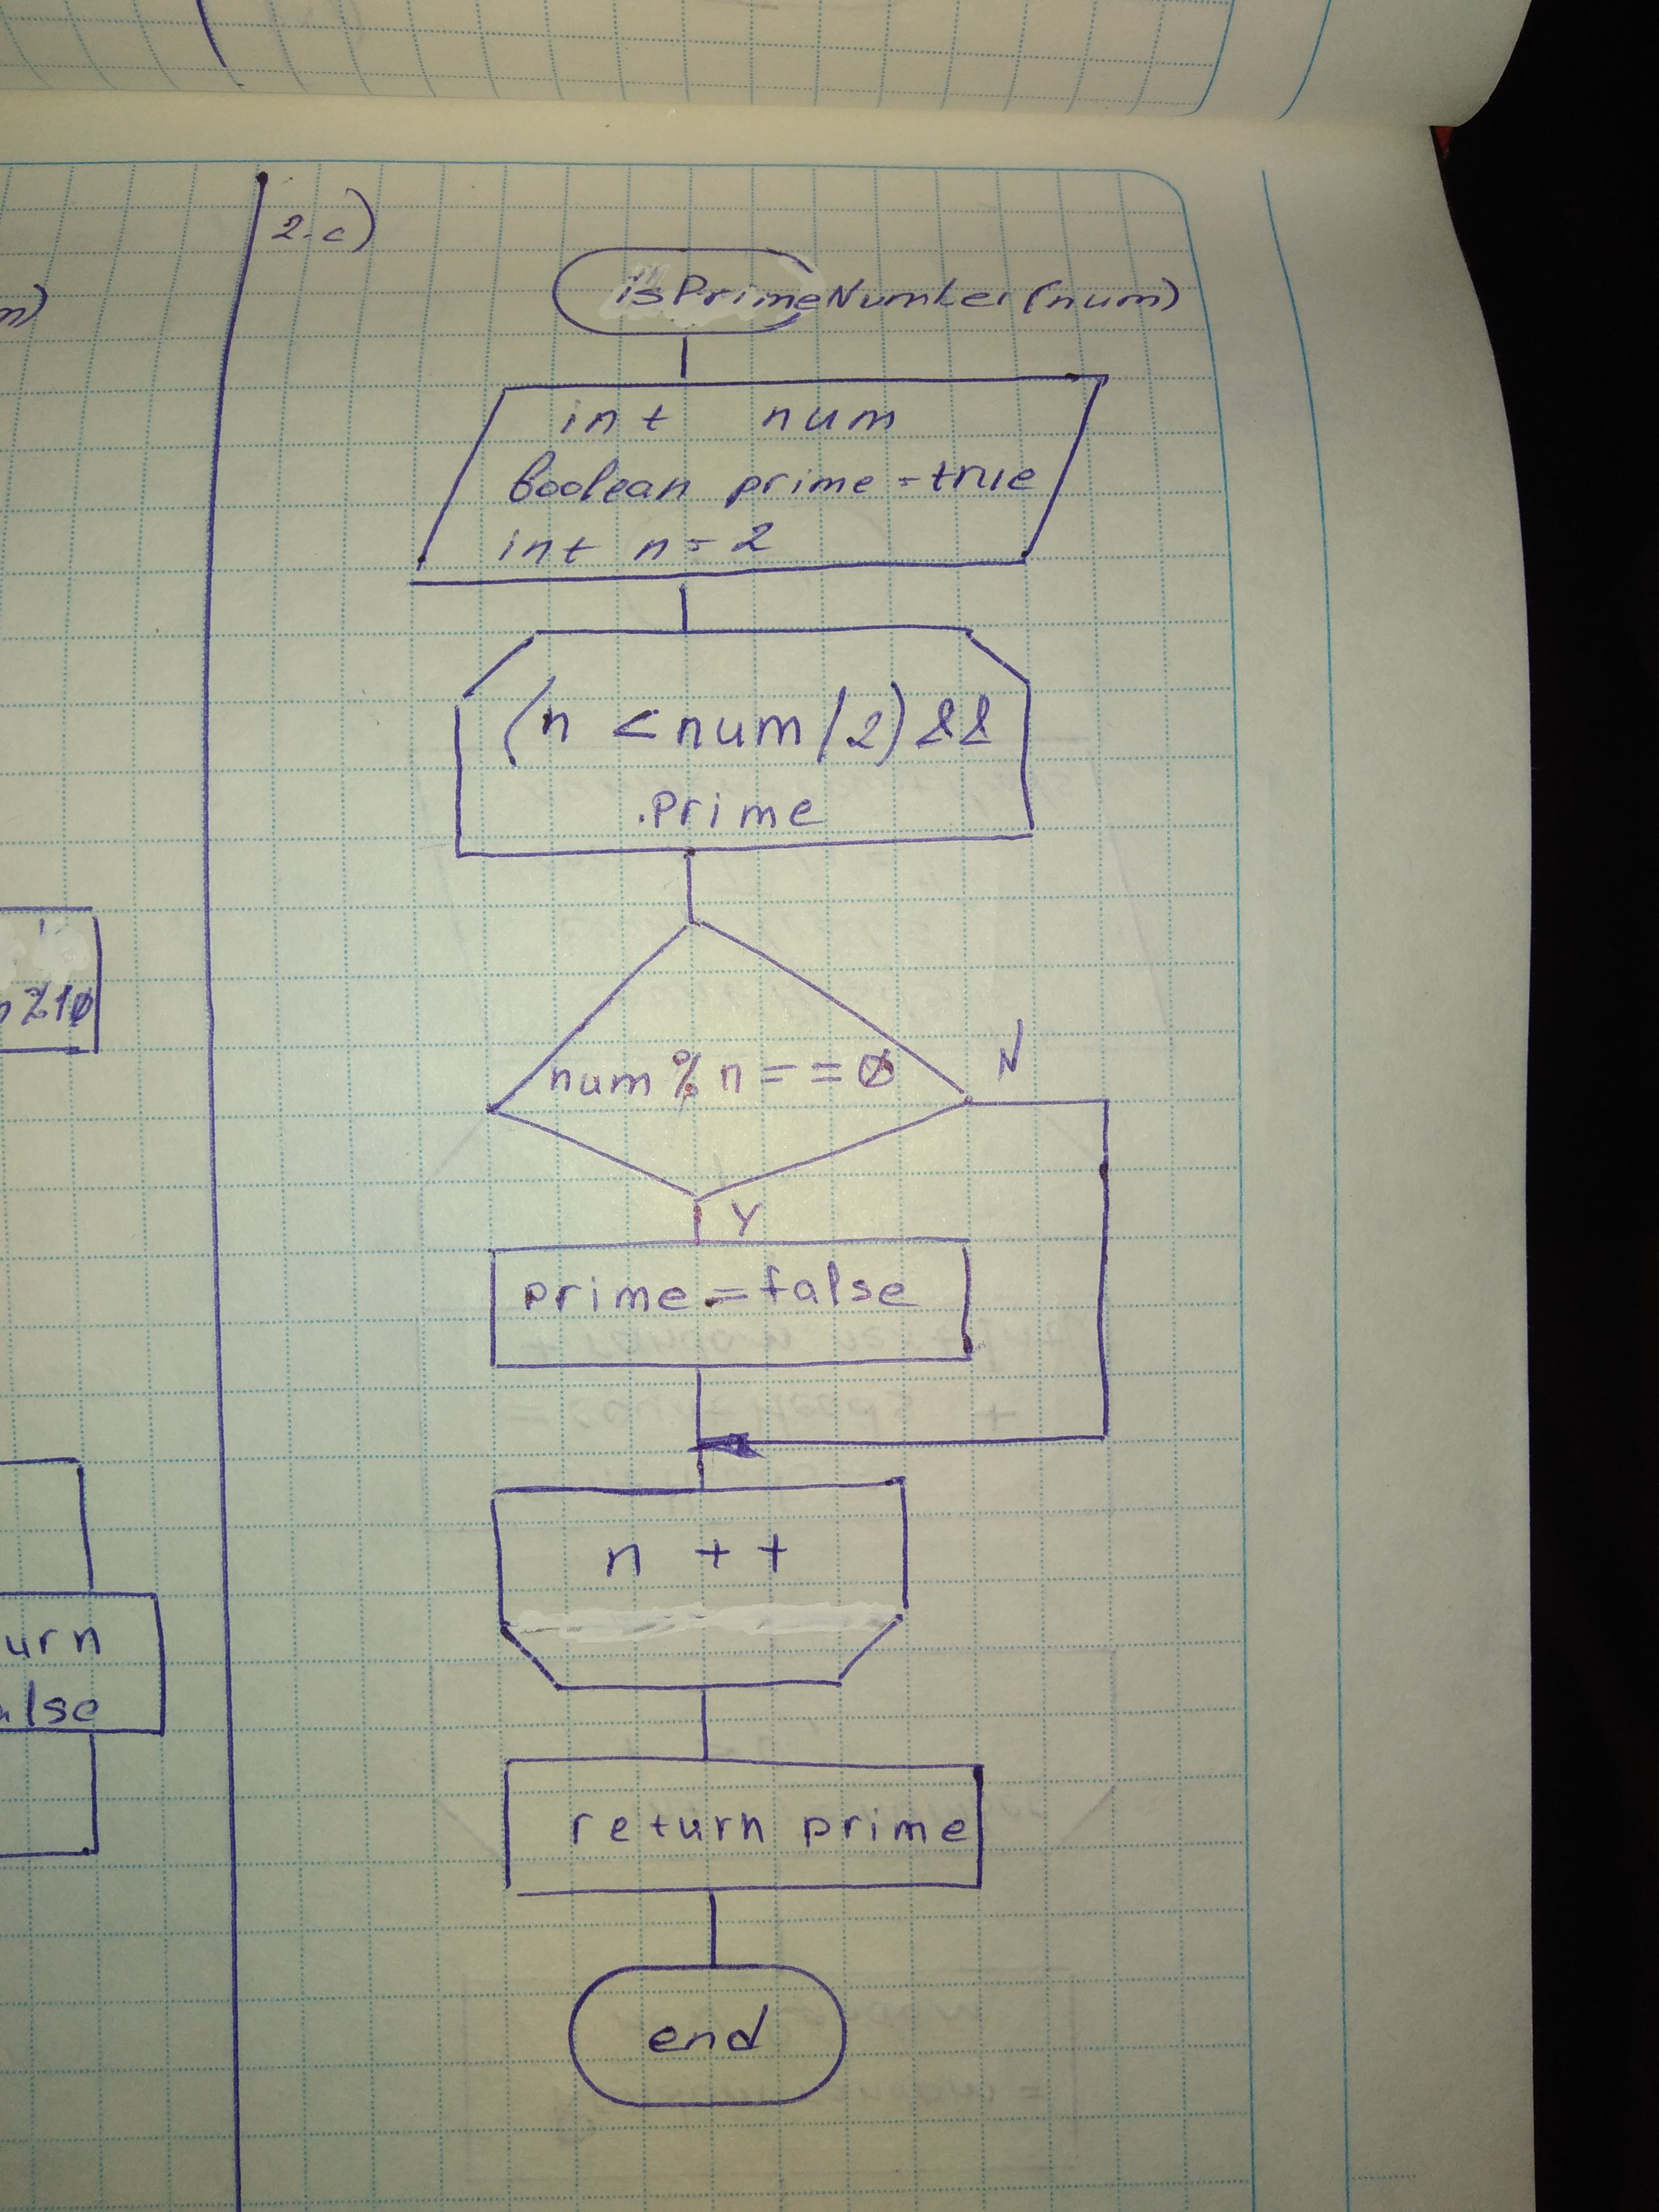 m)
%10
urn
alse
2.c)
isPrimeNumber(num)
int num
boolean prime = true
int n = 2
(n < num/2) &&
prime
num % n == 0
N
Y
prime = false
n ++
return prime
end